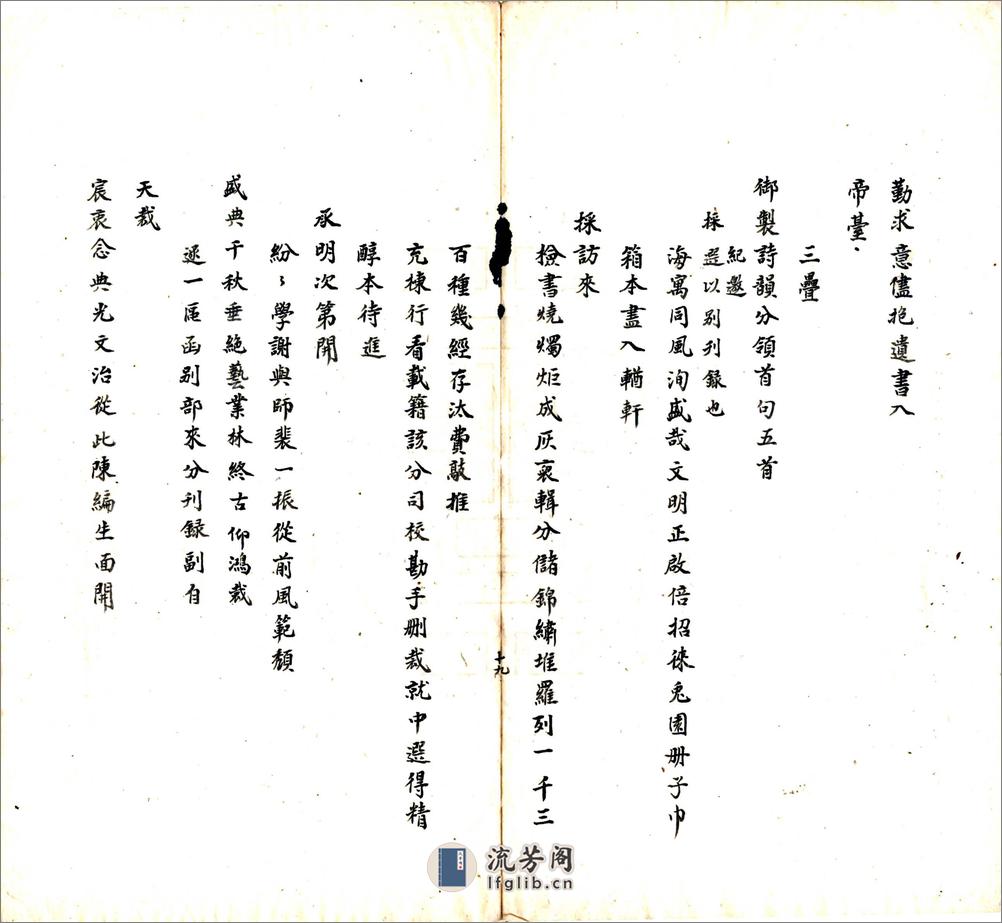 勤求意儘抱遺書入
帝臺
三疊
御製詩韻分領首句五首
紀邀
採選以别刋錄也
海寓同風洵盛哉文明正啟倍招徠兎園册子巾
箱本盡入輶軒
採訪來
檢書燒燭炬成灰裒輯分儲錦繡堆羅列一千三
百種幾經存汰費敲推
充棟行看載籍該分司校勘手刪裁就中選得精
醇本待進
承明次第開
紛〻學謝與師裴一振從前風範頽
盛典千秋垂絶藝業林終古仰鴻裁
逐一區函别部來分刋録副自
天裁
宸衷念典光文治從此陳編生面開
十九
流芳阁
lfglib.cn